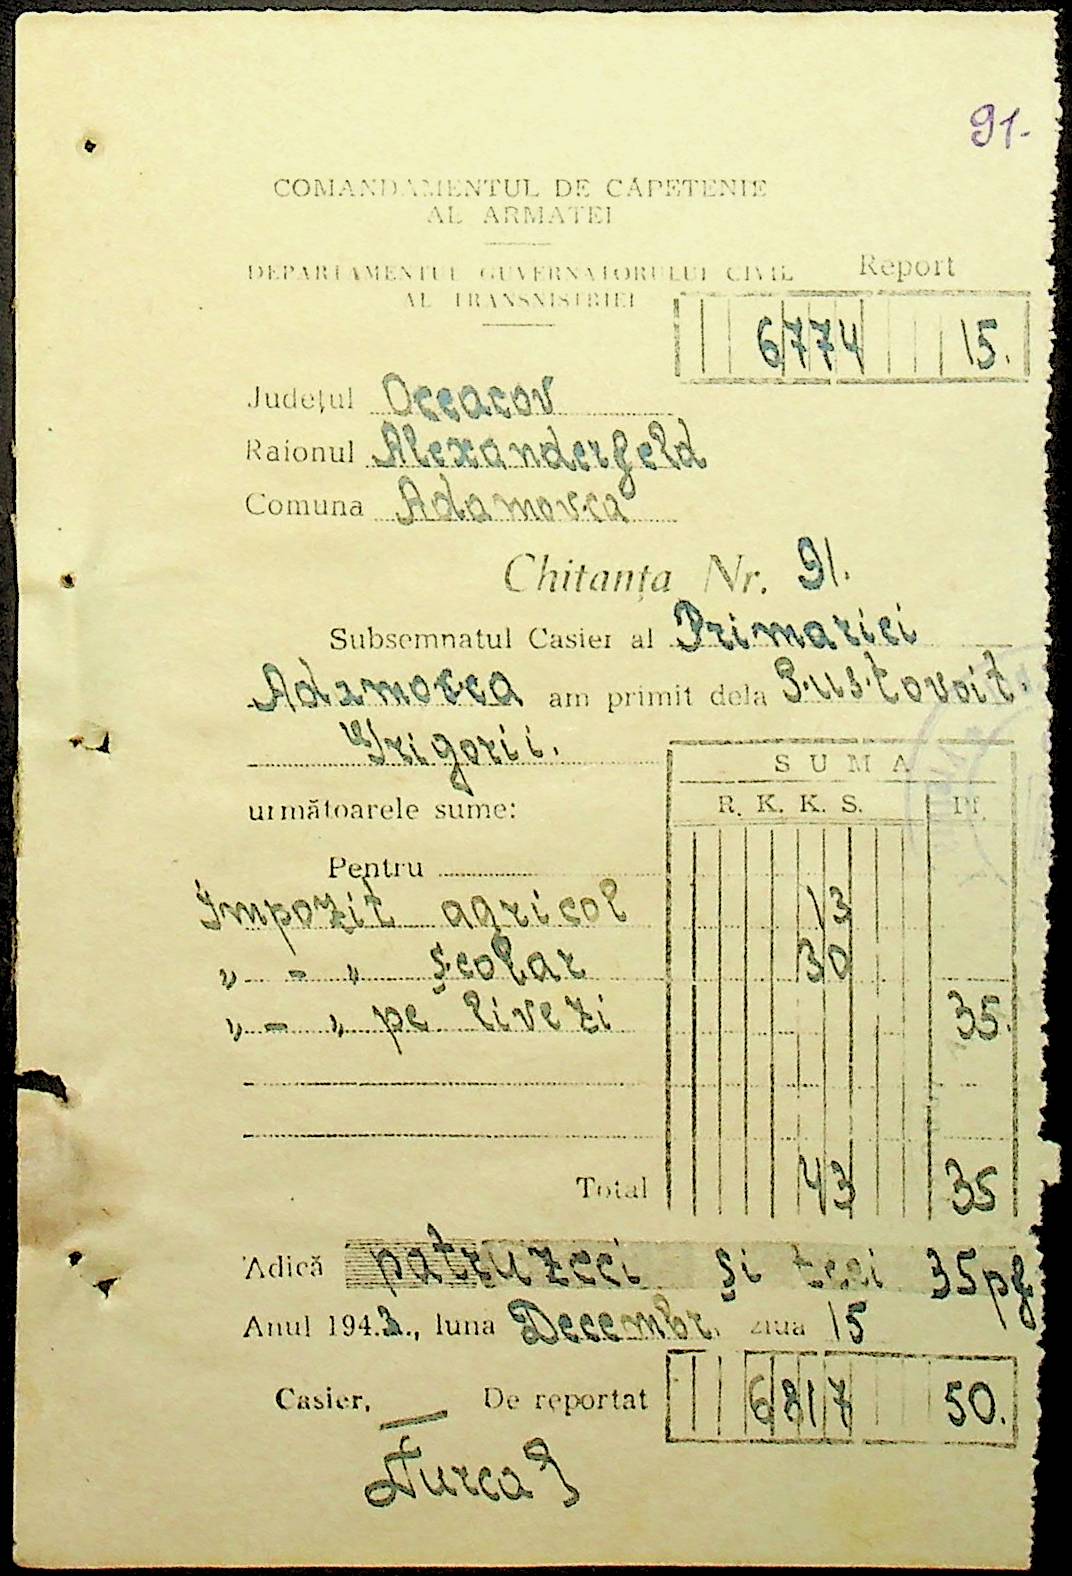 91.
COMANDAMENTUL DE CĂPETENIE
AL ARMATEI
DEPARTAMENTUL GUVERNATORULUI CIVIL
AL TRANSNISTRIEI
Report
6774 15.
Județul Oceacov
Raionul Alexanderfeld
Comuna Adamovca
Chitanța Nr. 91.
Subsemnatul Casier al Primariei
Adamovca am primit dela Pustovoit.
Grigorii.
SUMA
următoarele sume: R. K. K. S. Pf.
Pentru
Impozit agricol 13
" - " școlar 30
" - " pe livezi 35.
Total 43 35
Adică patruzeci și trei 35 pf
Anul 1942., luna Decembr. ziua 15
Casier, De reportat 6817 50.
Țurca